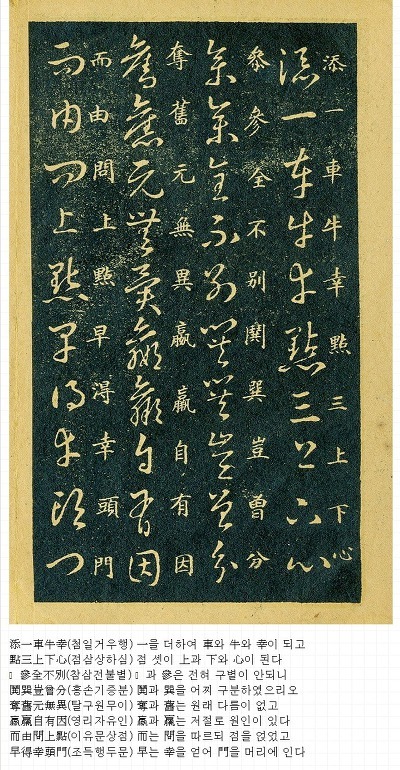 添一車牛幸點三上下心
添一車牛幸點三上下心
叅參全不別鬨巽豈曾分
叅參全不別鬨巽豈曾分
奪舊元無異嬴羸自有因
奪舊元無異嬴羸自有因
而由問上點早得幸頭門
而由問上點早得幸頭門
添一車牛幸(첨일거우행) 一을 더하여 車와 牛와 幸이 되고
點三上下心(점삼상하심) 점 셋이 上과 下와 心이 된다
參全不別(참삼전불별) 과 參은 전혀 구별이 안되니
鬨巽豈曾分(홍손기증분) 鬨과 巽을 어찌 구분하였으리오
奪舊元無異(탈구원무이) 奪과 舊는 원래 다름이 없고
嬴羸自有因(영리자유인) 嬴과 羸는 저절로 원인이 있다
而由問上點(이유문상점) 而는 問을 따르되 점을 얹었고
早得幸頭門(조득행두문) 早는 幸을 얻어 門을 머리에 인다